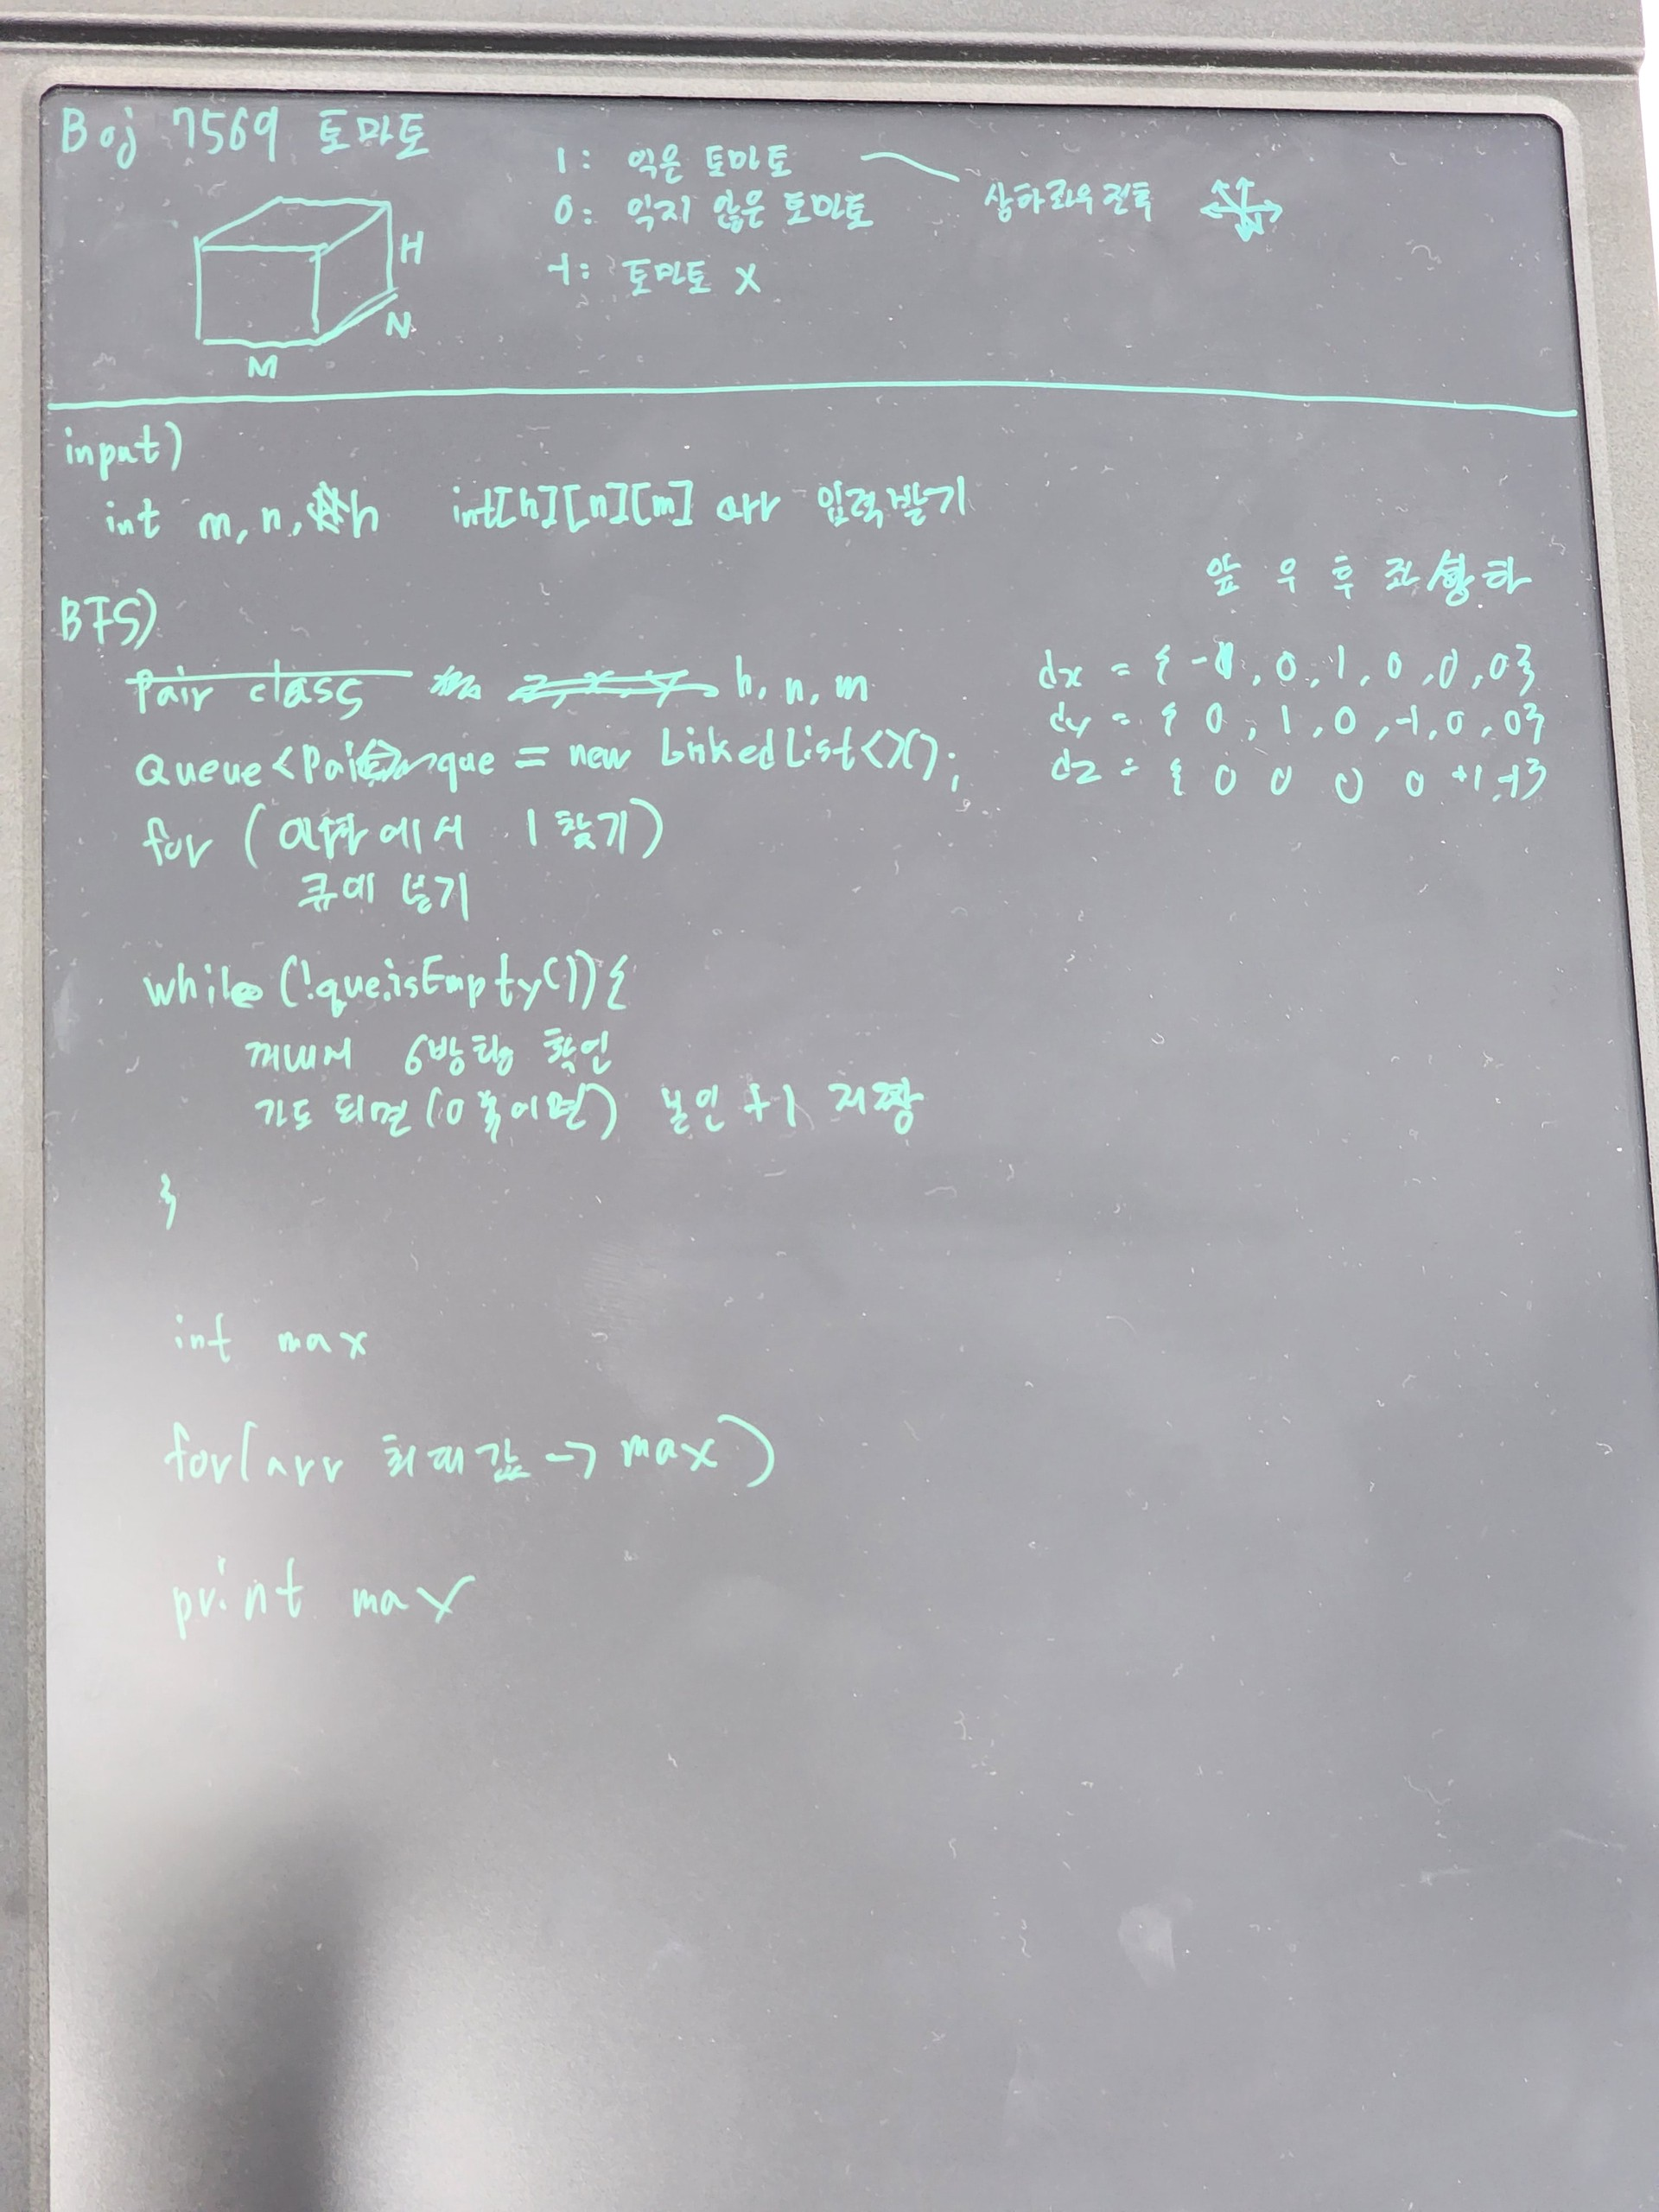 Boj 7569 토마토
1: 익은 토마토
상하좌우전후
0: 익지 않은 토마토
-1: 토마토 X
H
N
M
input)
int m, n, h int[h][n][m] arr 입력받기
BFS)
앞 우 후 좌 상 하
Pair class h, n, m
dx = { -1, 0, 1, 0, 0, 0}
dy = { 0, 1, 0, -1, 0, 0}
Queue<Pair> que = new LinkedList<>();
dz = { 0 0 0 0 +1, -1}
for (arr에서 1 찾기)
큐에 넣기
while (!que.isEmpty()){
꺼내서 6방향 확인
가도 되면(0 이면) 본인 +1 저장
}
int max
for(arr 최대값 -> max)
print max